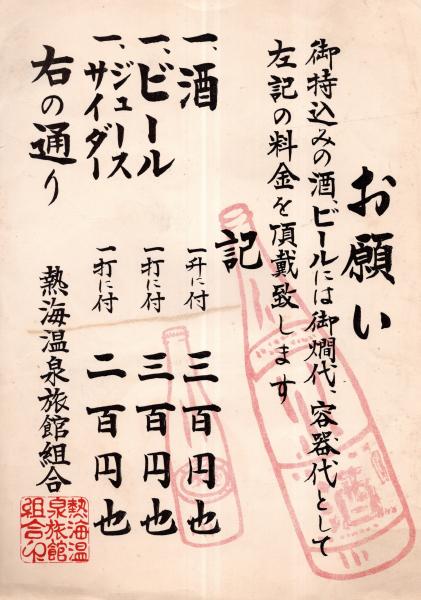 お願い
御持込みの酒、ビールには御燗代、容器代として
左記の料金を頂戴致します
記
一、酒 一升に付 三百円也
一、ビール 一打に付 三百円也
一、ジュース
サイダー 一打に付 二百円也
右の通り
熱海温泉旅館組合
熱海温
泉旅館
組合印